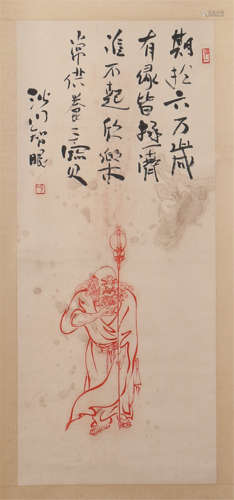 期於六万歲
有缘皆拯濟
谁不起欣樂
常供養三寳
沙门智眠